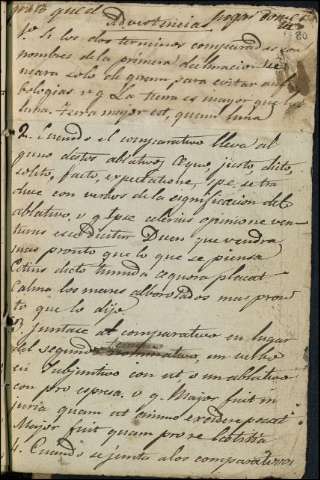 puesto que el
advertencias
80
1ª Si los dos terminos comparados son
nombres de la primera declinacion se
usara solo de quam para evitar anfi-
bologias v g La tierra es mayor que la
luna. terra major est, quam luna
2. Cuando el comparativo lleva al
guno destos ablativos, Æquo, justo, dicto,
solito, facto, expectatione, spe, se tra
duce con verbos de la significacion del
ablativo, v g Ipse celerius opinione ven
turus esse dicitur Dicen que vendra
mas pronto que lo que se piensa
Cotius dicto tumida æquora placat
Calma los mares alborotados mas pron
to que lo dijo
3. juntase al comparativo en lugar
del segundo termino, un verbo
en subjuntivo con ut, o un ablativo
con pro espresa, v g. Major fuit in
juria quam ut animo credere posset
Major fuit quam pro re lætitia
4. Cuando se junta a los comparativos